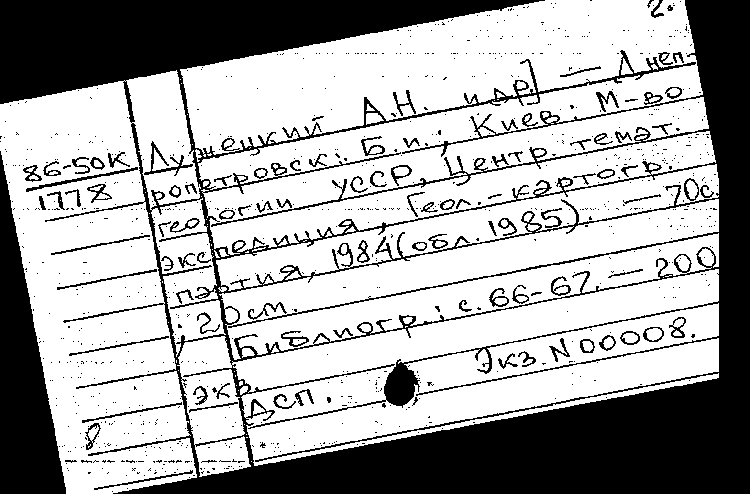 2.
Лужецкий А.Н. и др] — Днеп-
86-50К
1778
ропетровск: Б.и.; Киев: М-во
геологии УССР, Центр. темат.
экспедиция, Геол.-картогр.
партия, 1984 (обл. 1985). — 70с.
; 20см.
Библиогр.: с. 66-67. — 200
экз.
ДСП. Экз. N 00008.
8